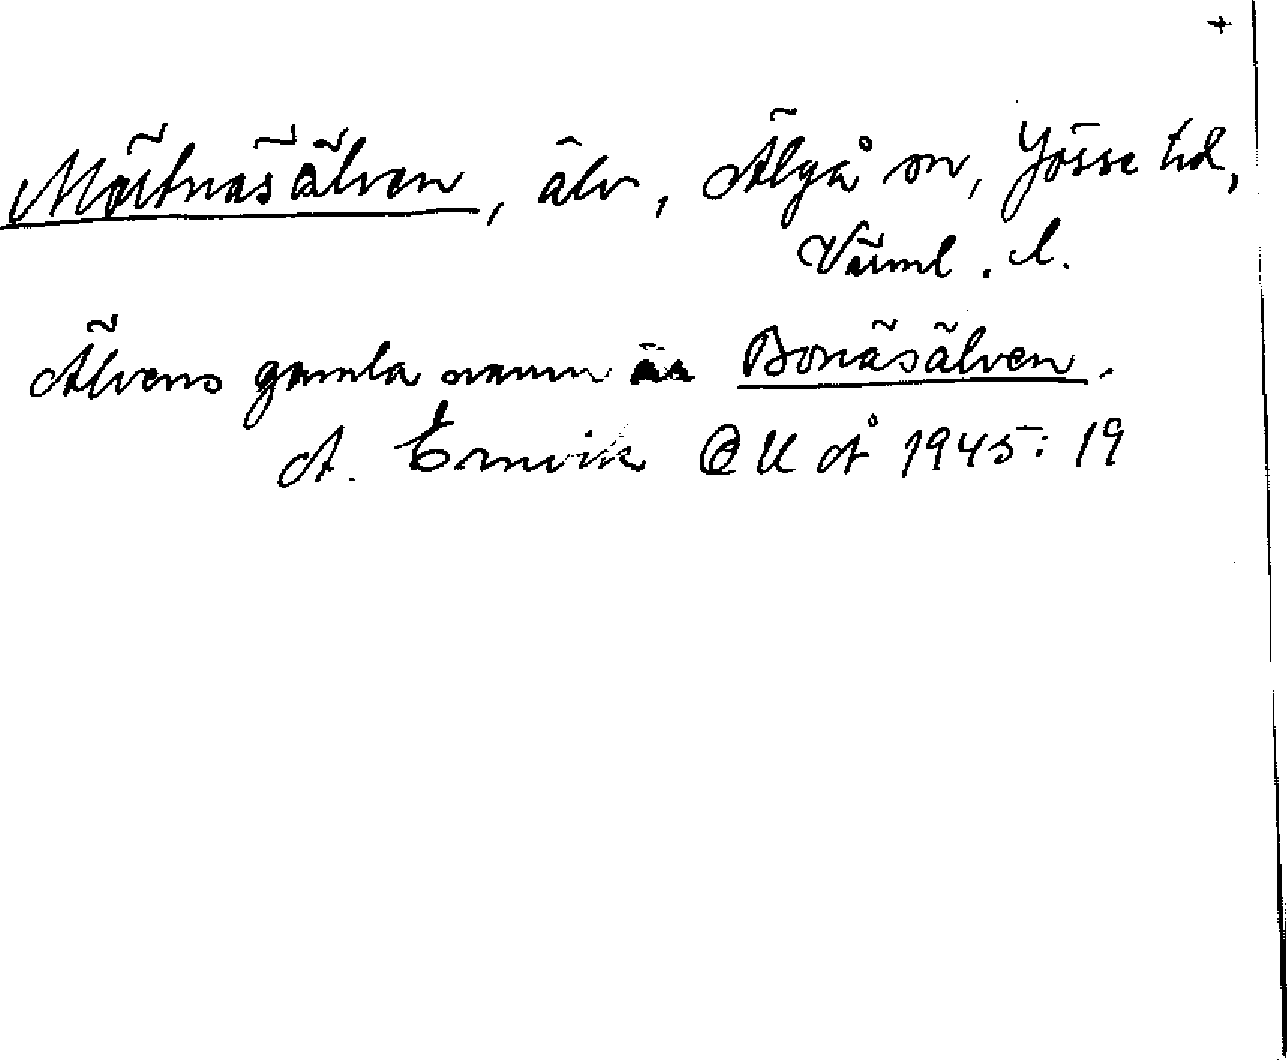 +
Mörtnäsälven, älv, Älgå sn, Jösse hd,
Värml. l.
Älvens gamla namn är Bonäsälven.
A. Ernvik OUÅ 1945: 19